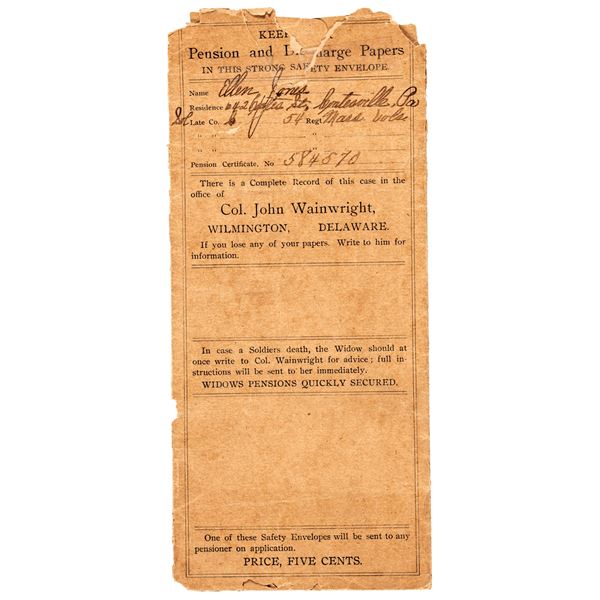 KEEP
Pension and Discharge Papers
IN THIS STRONG SAFETY ENVELOPE.
Name Ellen Jones
Residence 642 St, Coatesville, Pa
Late Co. 54 Regt. Mass Vols
" " "
" " "
Pension Certificate, No 584570
There is a Complete Record of this case in the
office of
Col. John Wainwright,
WILMINGTON, DELAWARE.
If you lose any of your papers. Write to him for
information.
In case a Soldiers death, the Widow should at
once write to Col. Wainwright for advice; full in-
structions will be sent to her immediately.
WIDOWS PENSIONS QUICKLY SECURED.
One of these Safety Envelopes will be sent to any
pensioner on application.
PRICE, FIVE CENTS.